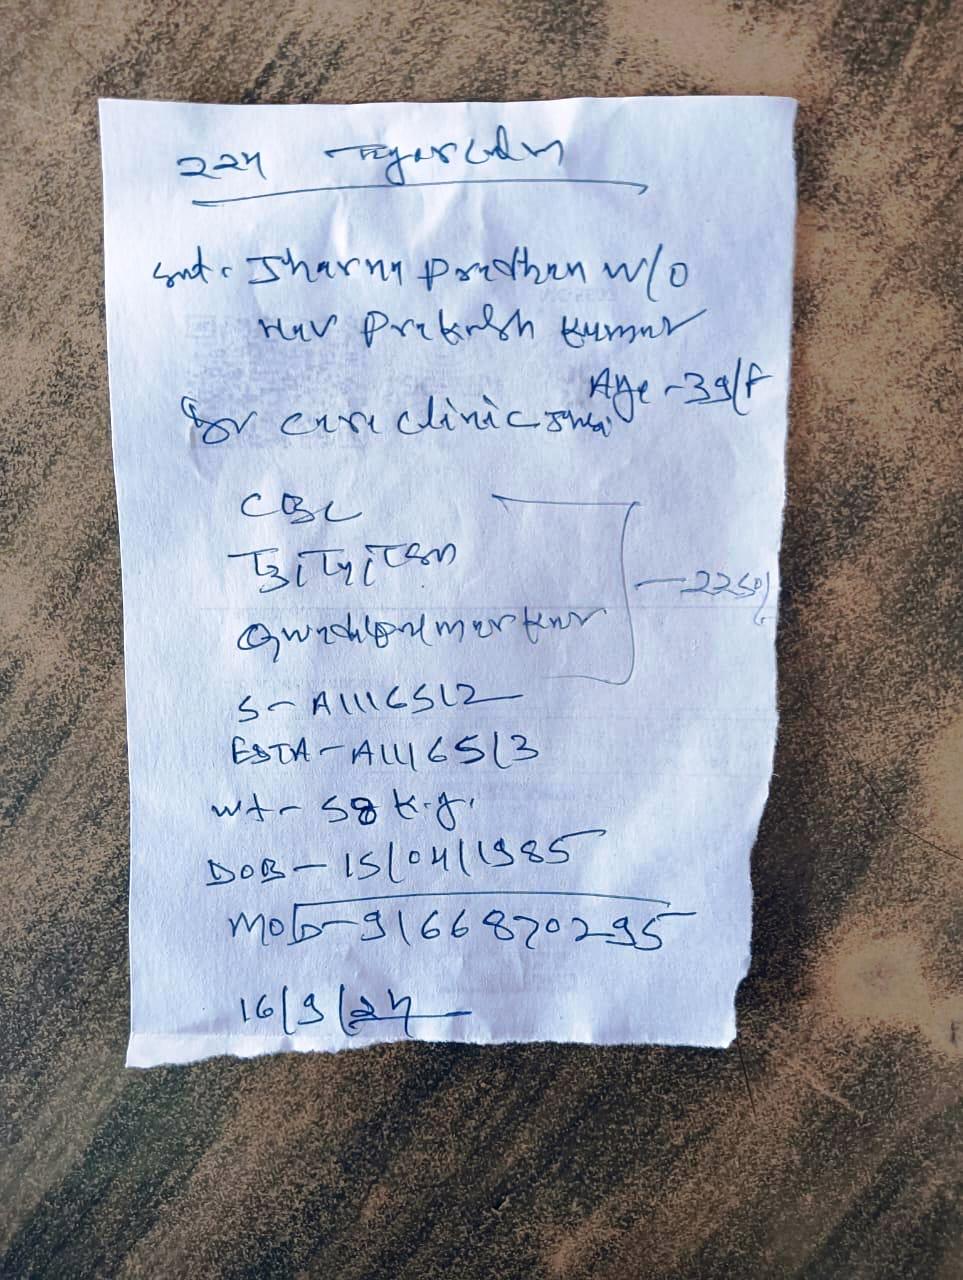 224
Smt. Jharna Pradhan W/O
Hav Prakash Kumar
Age - 39/F
Dr care clinic
CBC
T3, T4, TSH
Quadruple marker
2250/
S - A1116512
ESTA - A1116513
wt - 58 K.g.
DOB - 15/04/1985
Mob - 9166870295
16/9/24